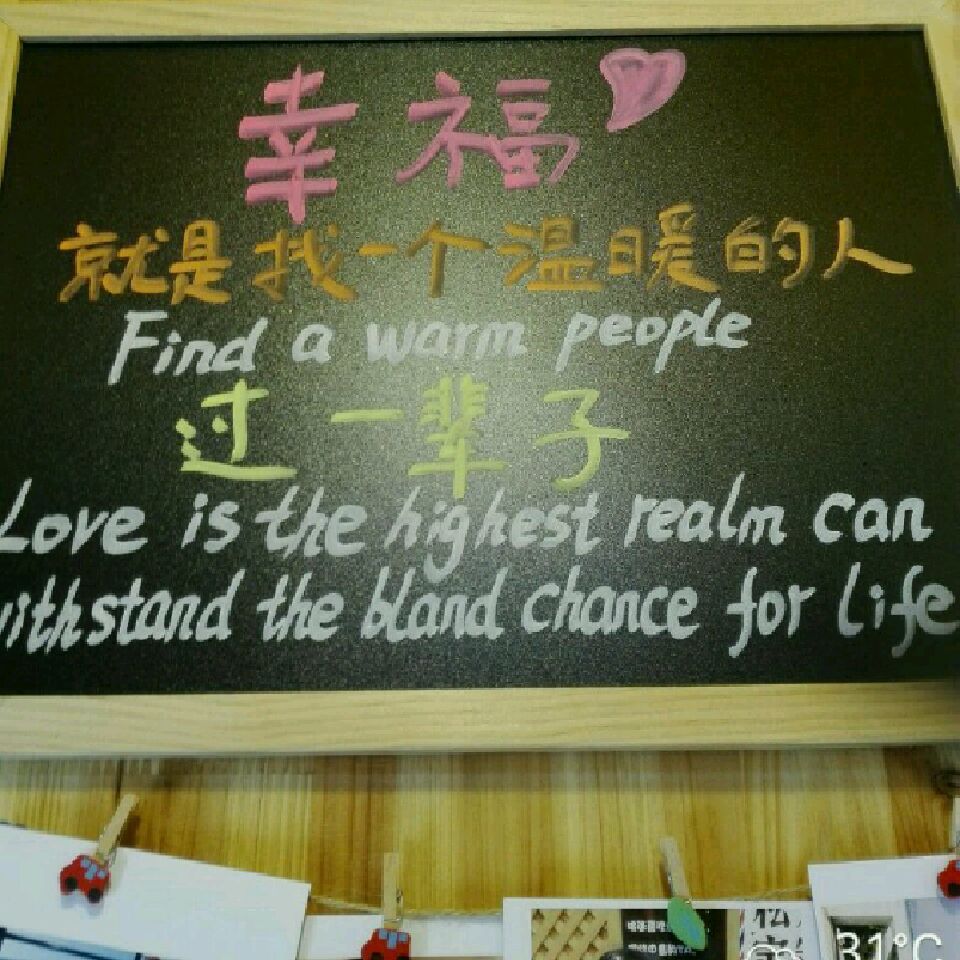 幸福
就是找一个温暖的人
Find a warm people
过一辈子
Love is the highest realm can
withstand the bland chance for life
31°C